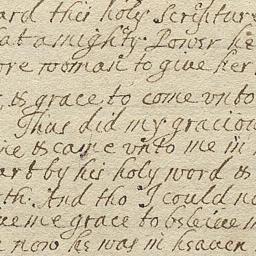 ard this holy Scripture
at amighty Power he
ore woman to give her
& grace to come unto
Thus did my graciou
me & came unto me in
art by his holy word &
th. And tho I could no
ive me grace to beleive
now he was in heaven